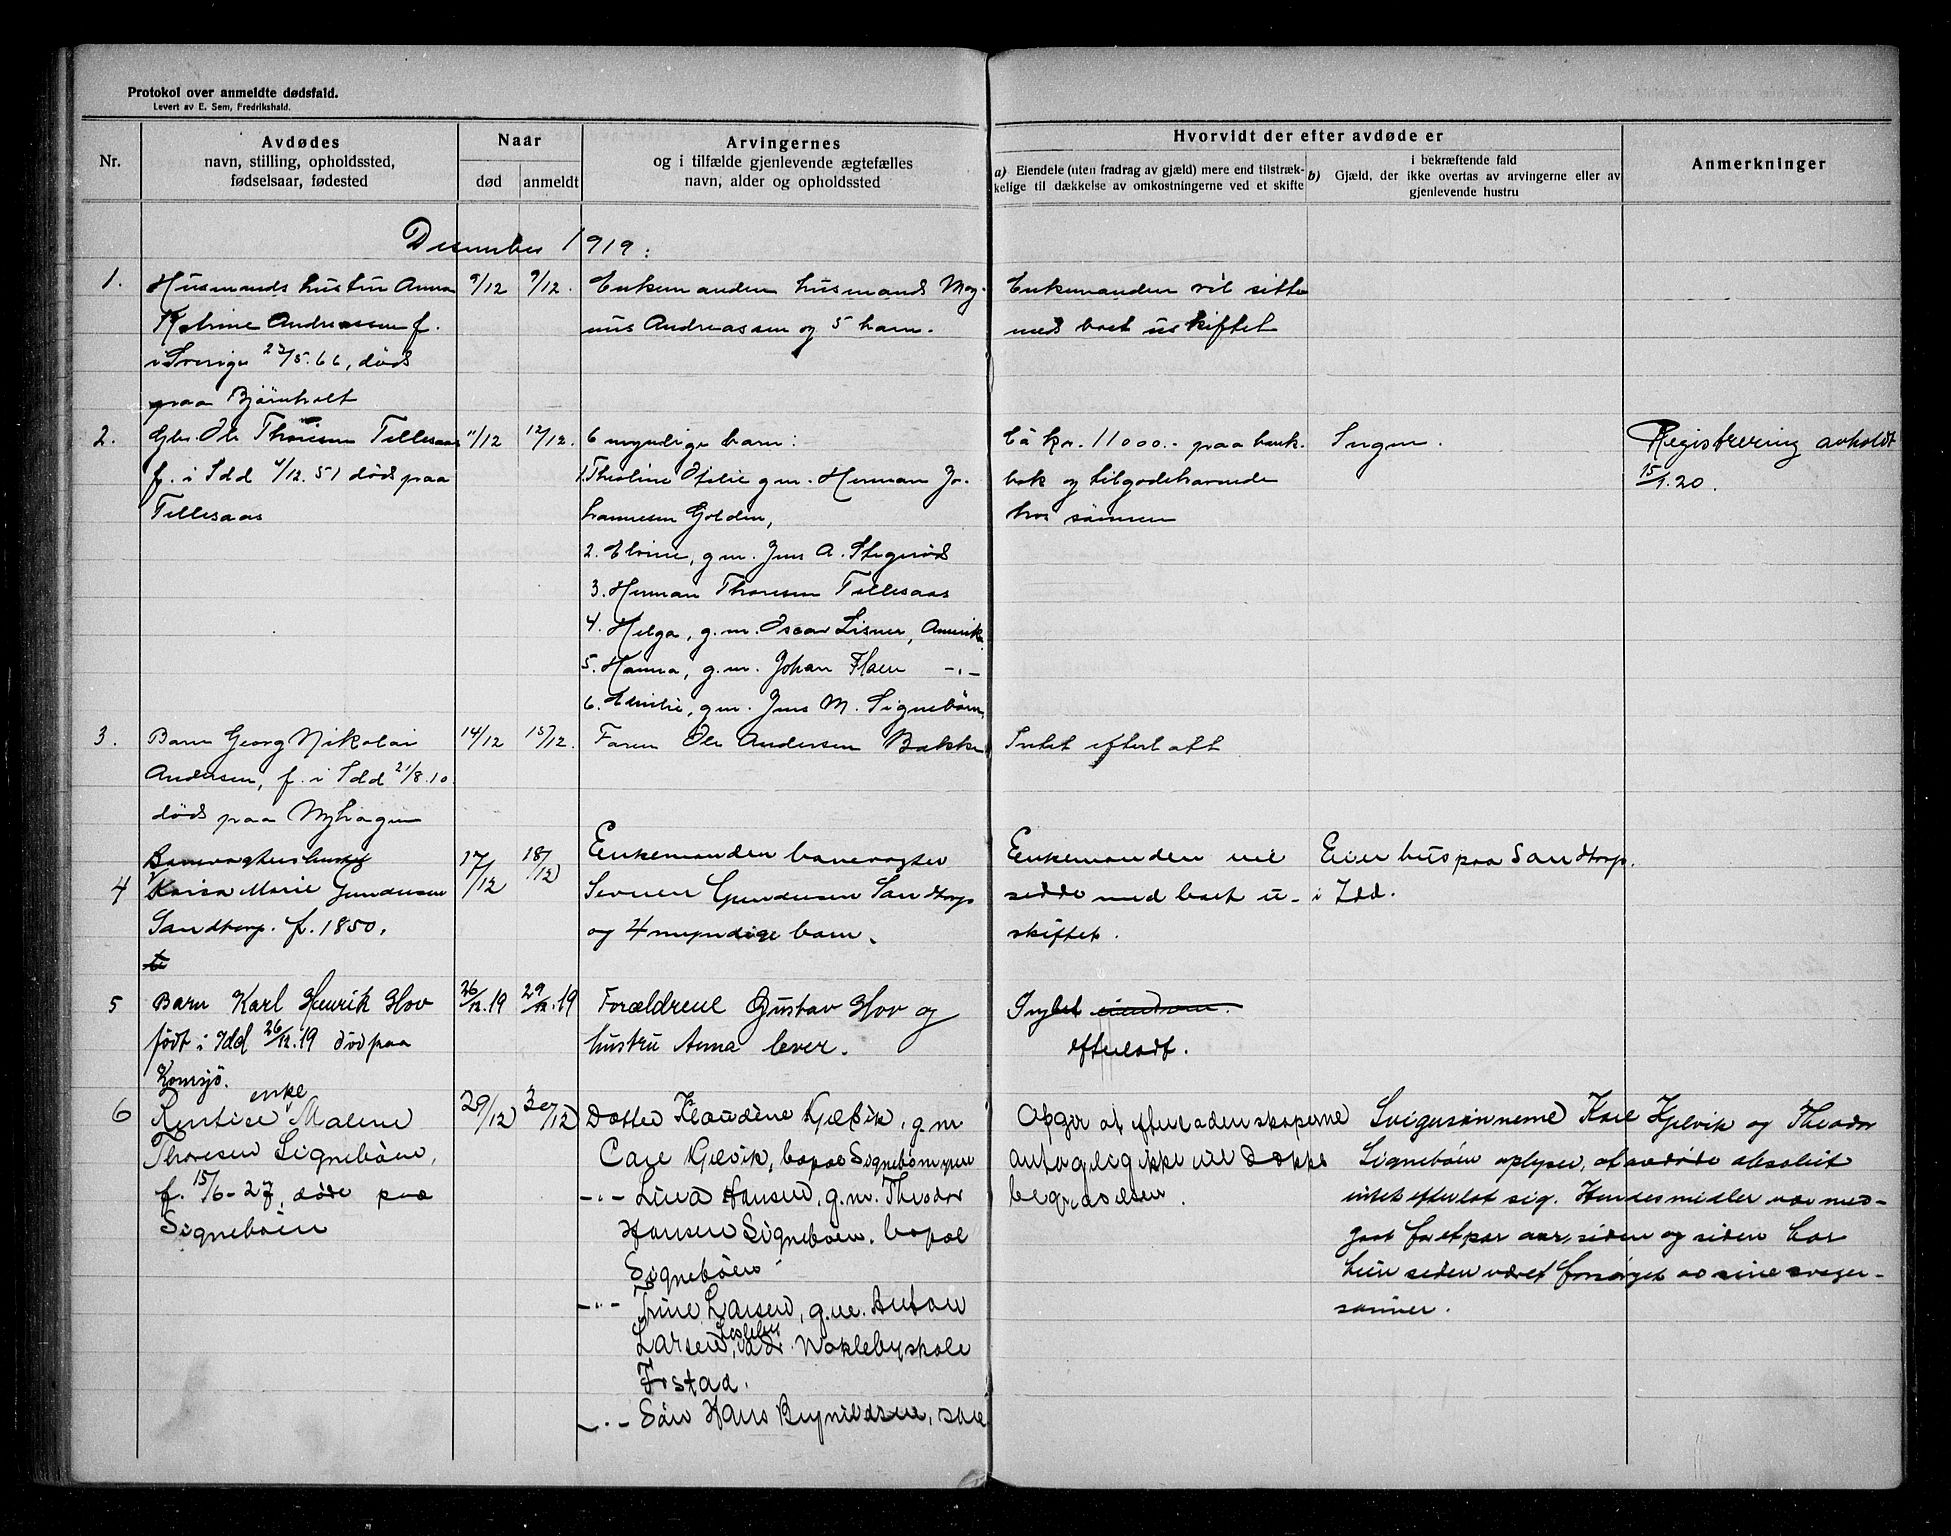 Protokol over anmeldte dødsfald.
Levert av E. Sem, Fredrikshald.
Nr.
Avdødes
navn, stilling, opholdssted,
fødselsaar, fødested
Naar
død
anmeldt
Arvingernes
og i tilfælde gjenlevende ægtefælles
navn, alder og opholdssted
Hvorvidt der efter avdøde er
a) Eiendele (uten fradrag av gjæld) mere end tilstræk-
kelige til dækkelse av omkostningerne ved et skifte
b) Gjæld, der i bekræftende fald
ikke overtas av arvingerne eller av
gjenlevende hustru
Anmerkninger
Desember 1919:
1.
Husmands hustru Anna
Katrine Andreassen f.
i Sverige 23/5.66, død
paa Bjørnholt
9/12
9/12.
Enkemanden husmand Mag-
nus Andreassen og 5 barn.
Enkemanden vil sitte
med boet uskiftet
2.
Gbr. Ole Thoresen Tillesaas
f. i Idd 4/12.51 død paa
Tillesaas
11/12
12/12.
6 myndige barn:
1. Theoline Otilie g.m. Herman Jo-
hannesen Golden,
2. Elvine, g.m. Jens A. Stegerød
3. Herman Thoresen Tillesaas
4. Helga, g.m. Oscar Lisner, Amerika
5. Hanna, g.m. Johan Floen -"-
6. Emilie, g.m. Jens M. Signebøen
Ca kr. 11000.- paa bank-
bok og tilgodehavende
hos sønnen
Ingen.
Registrering avholdt
15/1.20.
3.
Barn Georg Nikolai
Andersen, f. i Idd 21/8.10.
død paa Nyhagen
14/12
15/12.
Faren Ole Andersen Bakke
Intet efterlatt
4
Banevogters hustru
Karsa Marie Gundersen
Sandtorp. f. 1850.
17/12
18/12
Enkemanden banevogter
Severen Gundersen Sandtorp
og 4 myndige barn.
Enkemanden vil
sidde med boet u-
skiftet.
Eier hus paa Sandtorp.
i Idd.
5
Barn Karl Henrik Hov
født i Idd 26/12.19 død paa
Kornsjø.
26/12.19
29/12.19
Forældrene Gustav Hov og
hustru Anna lever.
Intet eiendom.
efterladt.
6
enke
Malene
Thoresen Signebøen,
f. 15/6-27, døde paa
Signebøen
29/12
30/12
Datter Klaudine Kjelvik, g.m
Carl Kjelvik, bopæl Signebøen
-"- Lina Hansen, g.m. Theodor
Hansen Signebøen. bopæl
Signebøen
-"- Trine Larsen, g.m. Anton
Larsen, Rokleby skole
F.stad.
-"- Søn Hans Brynildsen,
Opgir at efterladenskaperne
antagelig ikke vil dække
begravelsen.
Svigersønnerne Karl Kjelvik og Theodor
Signebøen oplyser, at avdøde absolut
intet efterlot sig. Hendes midler var med-
gaat for et par aar siden og siden har
hun siden været forsørget av sine sviger-
sønner.